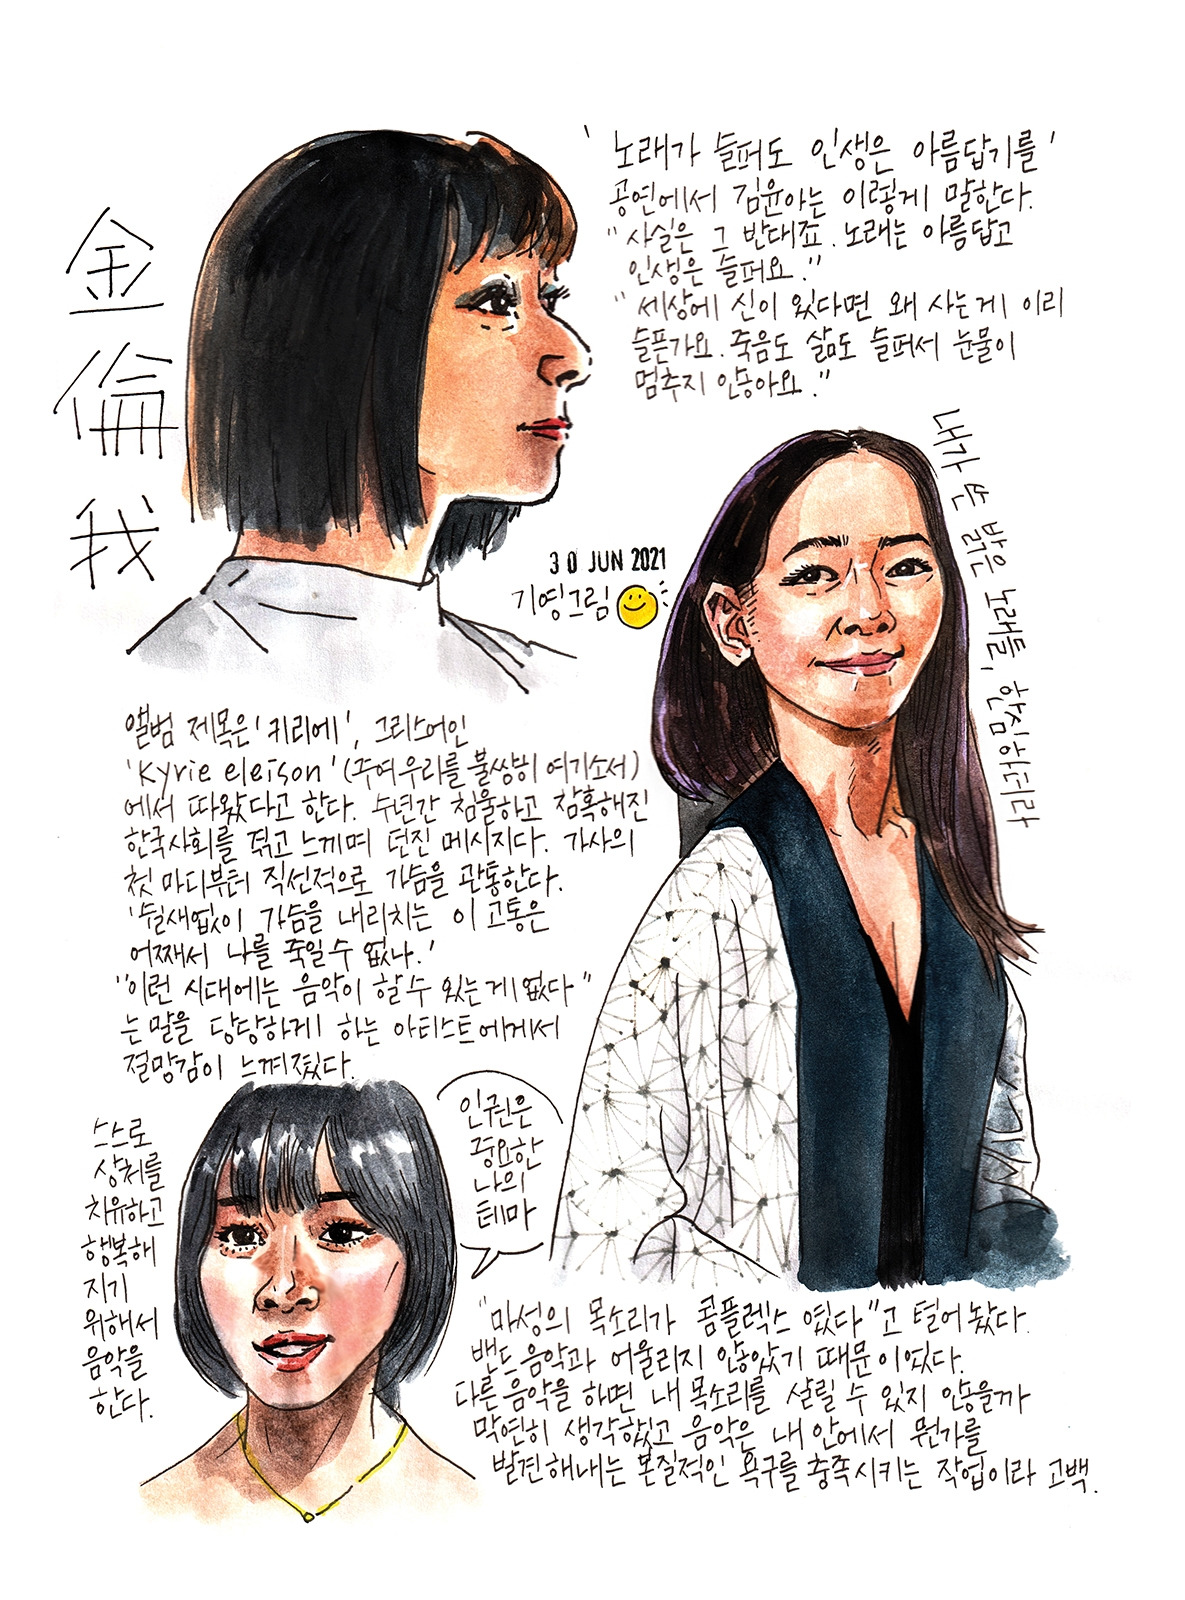 '노래가 슬퍼도 인생은 아름답기를'
공연에서 김윤아는 이렇게 말한다.
"사실은 그 반대죠. 노래는 아름답고
인생은 슬퍼요."
"세상에 신이 있다면 왜 사는게 이리
슬픈가요. 죽음도 삶도 슬퍼서 눈물이
멈추지 않아요."
金
倫
我
내가 쓴 밝은 노래들, 한심하더라
30 JUN 2021
기영그림
앨범 제목은 '키리에', 그리스어인
'Kyrie eleison' (주여 우리를 불쌍히 여기소서)
에서 따왔다고 한다. 수년간 침울하고 참혹해진
한국사회를 겪고 느끼며 던진 메시지다. 가사의
첫 마디부터 직선적으로 가슴을 관통한다.
'쉴새없이 가슴을 내리치는 이 고통은
어째서 나를 죽일 수 없나.'
"이런 시대에는 음악이 할 수 있는게 없다"
는 말을 당당하게 하는 아티스트에게서
절망감이 느껴졌다.
스스로
상처를
치유하고
행복해
지기
위해서
음악을
한다.
인권은
중요한
나의
테마
"마성의 목소리가 콤플렉스였다"고 털어놨다.
밴드음악과 어울리지 않았기 때문이었다.
다른 음악을 하면 내 목소리를 살릴 수 있지 않을까
막연히 생각했고 음악은 내 안에서 뭔가를
발견해내는 본질적인 욕구를 충족시키는 작업이라 고백.